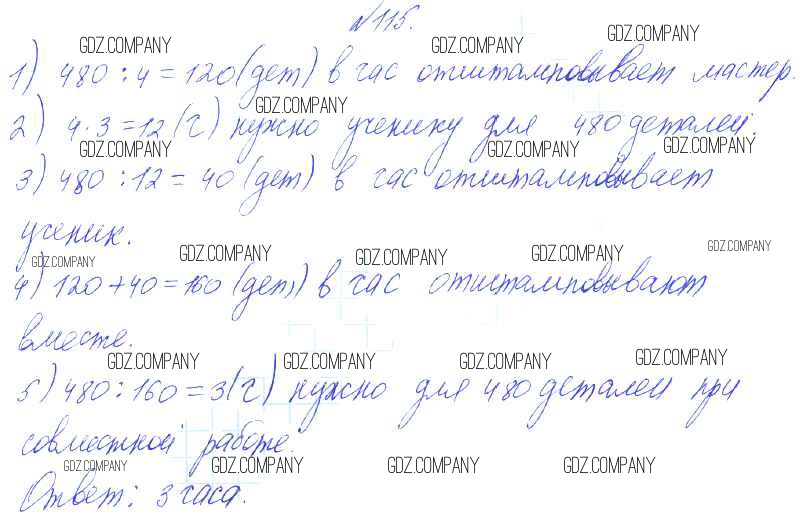 №115.
GDZ.COMPANY GDZ.COMPANY GDZ.COMPANY
1) 480 : 4 = 120 (дет) в час отштамповывает мастер.
GDZ.COMPANY
2) 4 · 3 = 12 (г) нужно ученику для 480 деталей.
GDZ.COMPANY GDZ.COMPANY GDZ.COMPANY
3) 480 : 12 = 40 (дет) в час отштамповывает
ученик.
GDZ.COMPANY GDZ.COMPANY GDZ.COMPANY GDZ.COMPANY GDZ.COMPANY
4) 120 + 40 = 160 (дет) в час отштамповывают
вместе.
GDZ.COMPANY GDZ.COMPANY GDZ.COMPANY GDZ.COMPANY
5) 480 : 160 = 3 (г) нужно для 480 деталей при
совместной работе.
GDZ.COMPANY GDZ.COMPANY GDZ.COMPANY GDZ.COMPANY
Ответ: 3 часа.